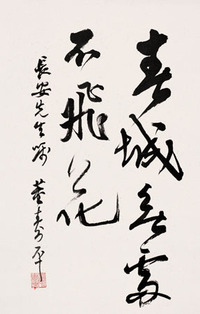 春城無處
不飛花
長安先生囑
董壽平